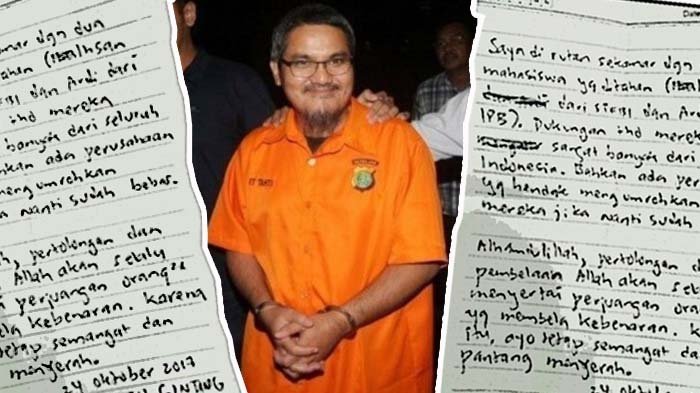 mar dgn dua
tahan (Ihsan
EBI dan Ardi dari
thd mereka
banyak dari seluruh
hkan ada perusahaan
mengumrohkan
a nanti sudah bebas.
ah, pertolongan dan
Allah akan selalu
perjuangan orang2
bela kebenaran. Karena
tetap semangat dan
menyerah.
24 Oktober 2017
GINTING
TAHTI
Saya di rutan sekamar dgn
mahasiswa yg ditahan (
dari STEBI dan Ard
IPB). Dukungan thd merek
sangat banyak dari
Indonesia. Bahkan ada per
yg hendak mengumrohkan
mereka jika nanti sudah
Alhamdulillah, pertolongan d
pembelaan Allah akan sel
menyertai perjuangan oran
yg membela kebenaran. K
itu, ayo tetap semangat da
pantang menyerah.
24 Oktober